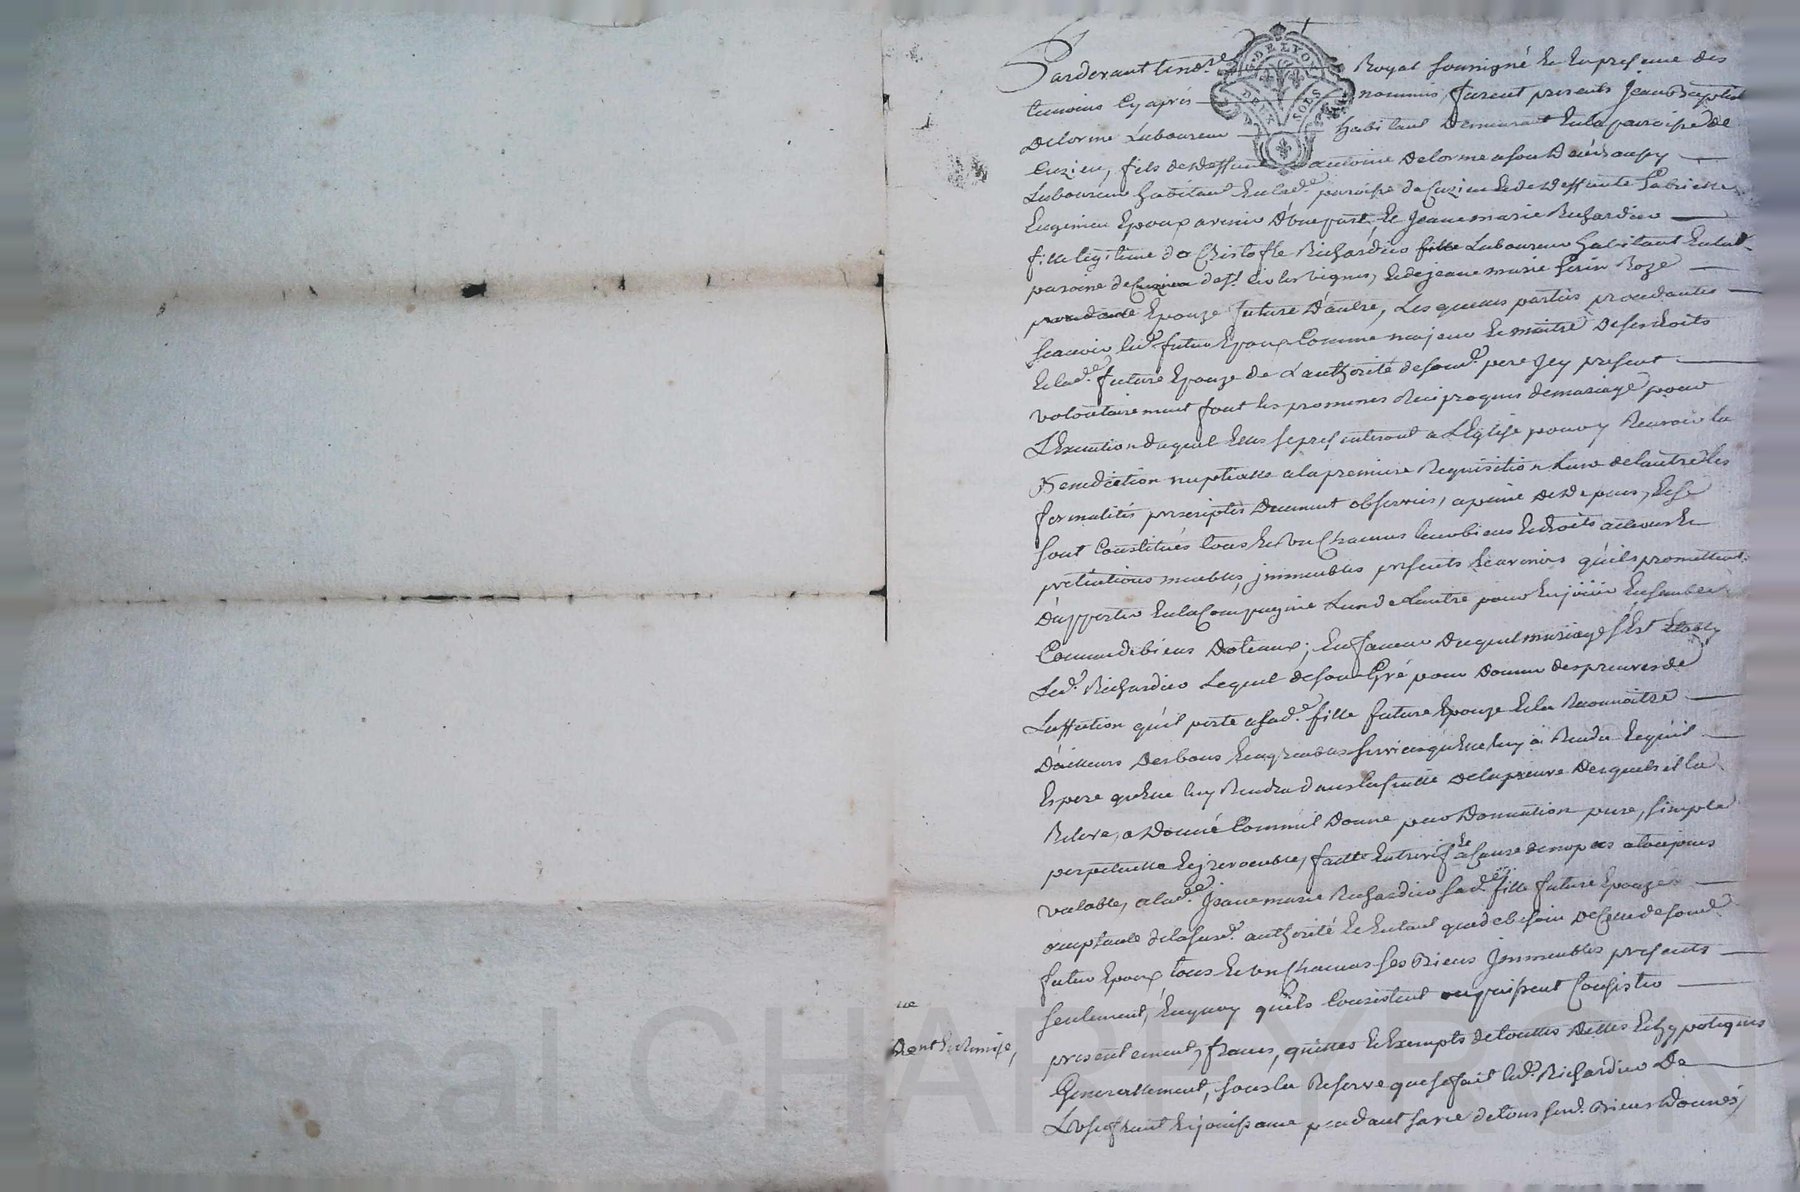 Pardevant le no.re Royal soussigné et en presence des
temoins cy aprés nommés, furent presents Jean Baptiste
Delorme Laboureur habitant demeurant en la paroisse de
Cuzieu, fils de deffunt antoine Delorme
G. DE LYON
DEUX SOLS
Laboureur habitant en lad.e paroisse de Cuzieu et de deffunte Gabrielle
Epoux avenir d'une part, et Jeanne marie Richardier
fille legitime de Christofle Richardier Laboureur habitant en lad.
paroisse de les vignes, et de jeanne marie
Epouze future d'autre, Lesquelles parties procedantes
scavoir led. futur Epoux Comme majeur et maitre de ses droits
et lad.e future Epouze de L'authorité de sond. pere jcy present
volontairement font les promesses Reciproques de mariage pour
L'Execution duquel Elles se presenteront a L'Eglise pour y Recevoir la
Benediction nuptialle a la premiere Requisition L'une de lautre les
formalités prescriptes duement observées, a peine de depens, et se
sont Constitués tous et un Chacuns leurs biens et droits actions et
pretentions meubles, jmmeubles presents et avenirs qu'ils promettent
d'apporter en la Compagnie L'un de Lautre pour En joüir Ensemble
Comme de biens doteaux; En faveur duquel mariage s'est
Led. Richardier Lequel de son Gré pour donner des preuves de
Laffection qu'il porte a sad.e fille future Epouze et la Reconnoitre
d'ailleurs des bons et agreables services qu'elle luy a Rendu et qu'il
Espere qu'elle luy Rendra dans la suitte de la preuve desquels il la
Releve, a donné Comme il donne par Donnation pure, simple
perpetuelle et jrrevocable, faitte Entre vifs et a Cause de nopces a toujours
valable, a lad.e Jeanne marie Richardier sad.e fille future Epouze
acceptante de lasusd. authorité et En tant que de besoin de Celle de sond.
futur Epoux, tous et un Chacuns ses Biens Jmmeubles presents
seulement, En quoy qu'ils Consistent ou puissent Consister
presentement, francs, quittes et Exempts de touttes dettes et hypoteques
Generallement, sous la Reserve que se fait led. Richardier De
L'usufruit et jouissance pendant sa vie de tous sesd. Biens donnés,
al CHAREYRON